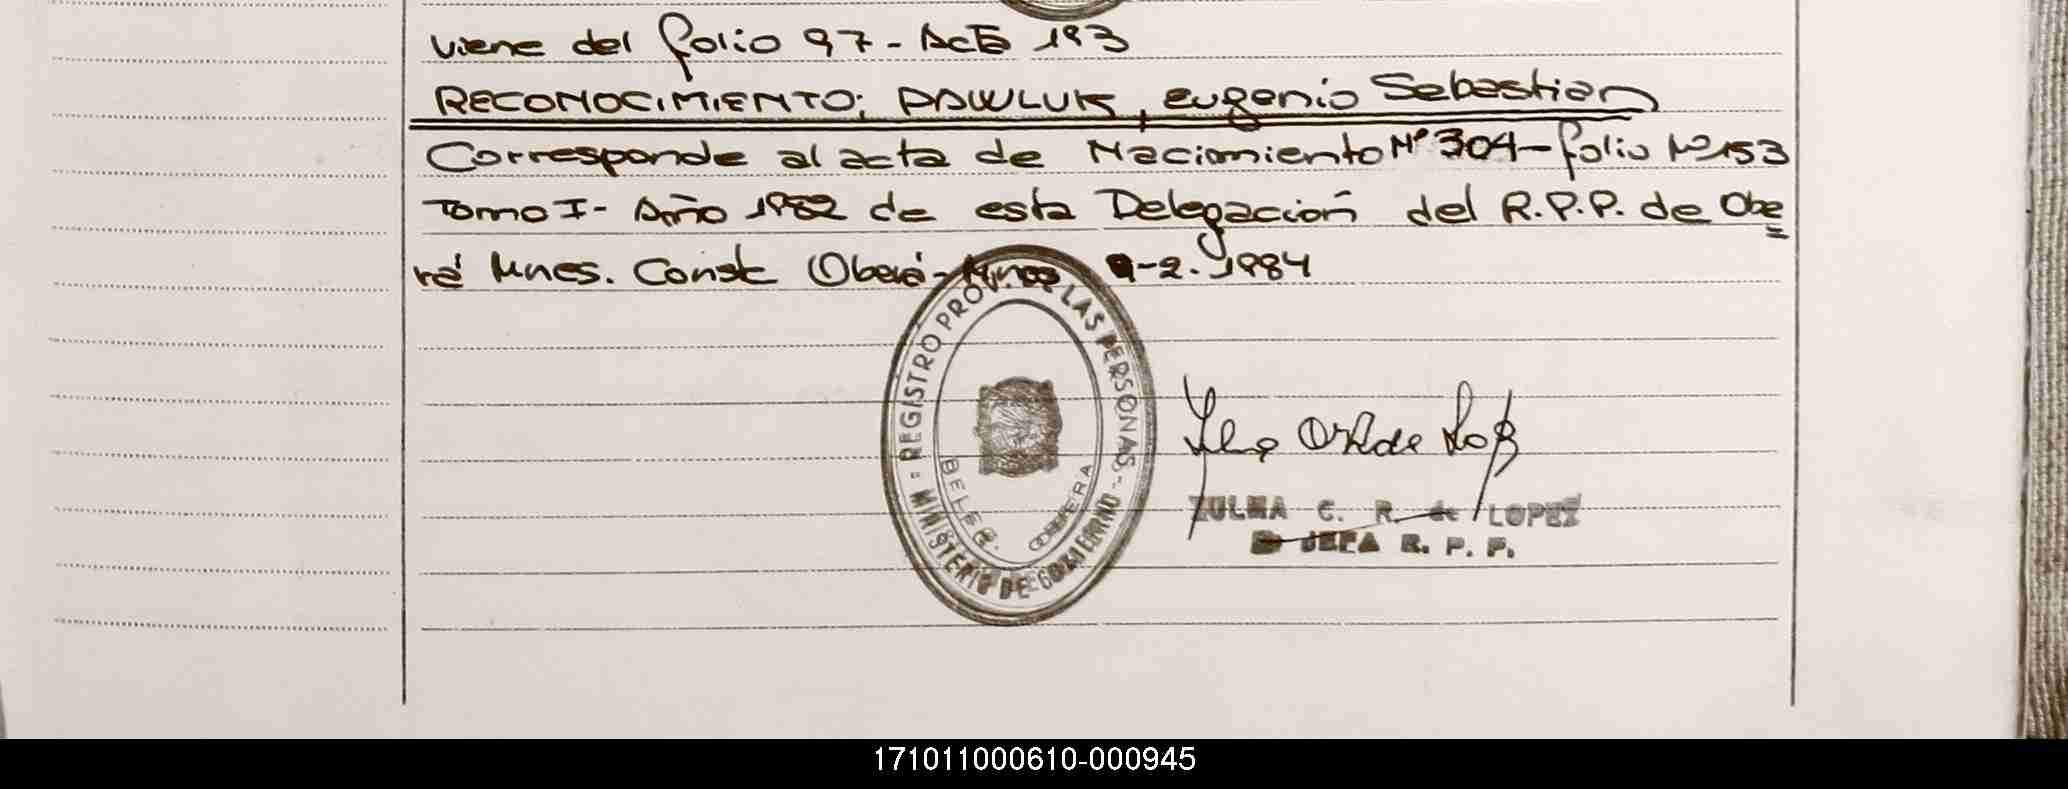 viene del folio 97 - Acta 193
RECONOCIMIENTO; PAWLUK, Eugenio Sebastian
Corresponde al acta de Nacimiento Nº 304 - folio Nº 153
Tomo I - Año 1982 de esta Delegación del R.P.P. de Obe
rá Mnes. Conste Oberá - Mnes 9-2-1984
REGISTRO PROV. DE LAS PERSONAS
MINISTERIO DE GOBIERNO
DELEG.
OBERA
ZULMA C. R. de LOPEZ
JEFA R. P. P.
171011000610-000945